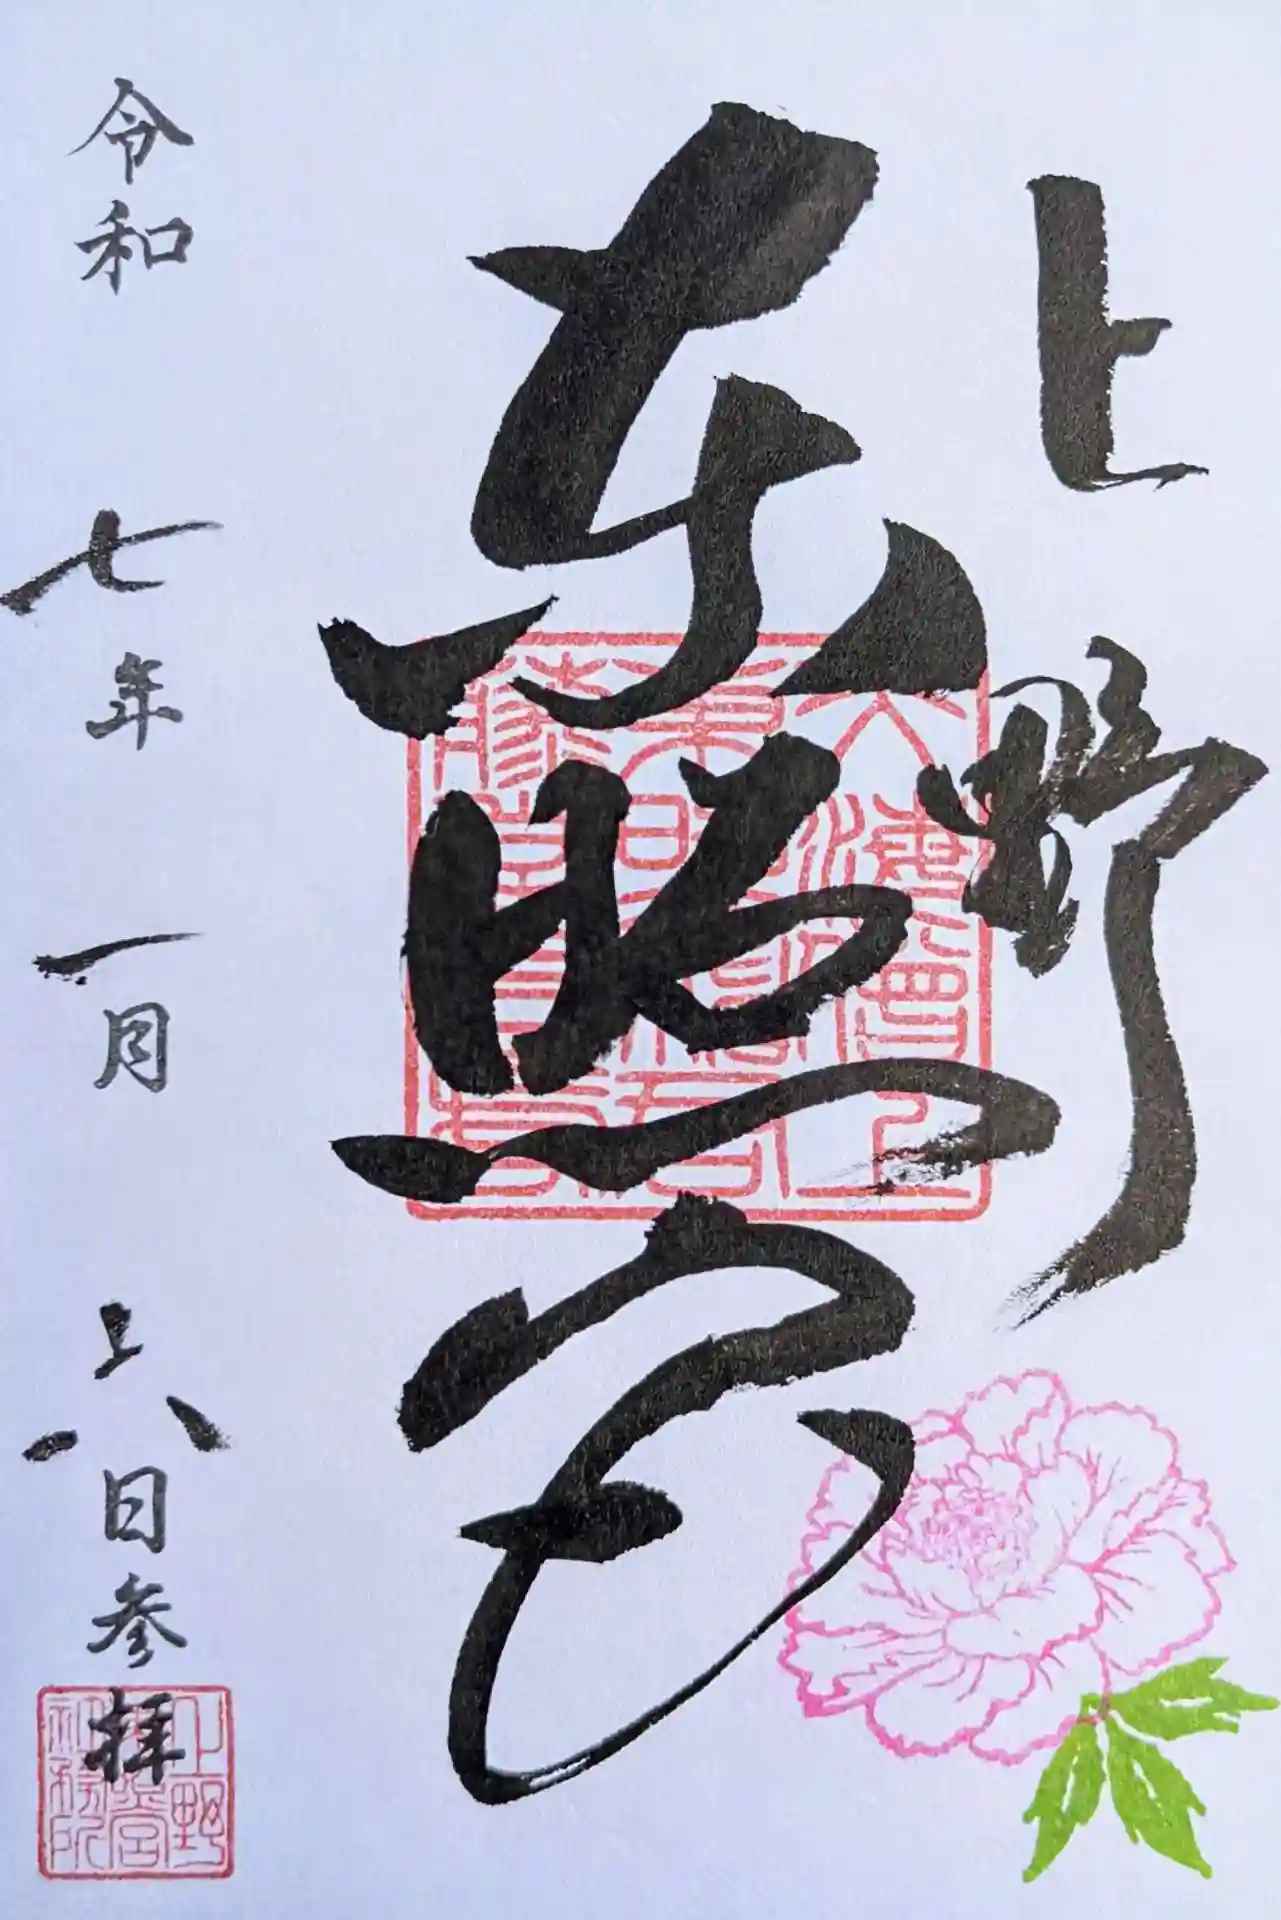 上野
東照宮
令和七年一月六日参拝
上野
東照宮
社務所